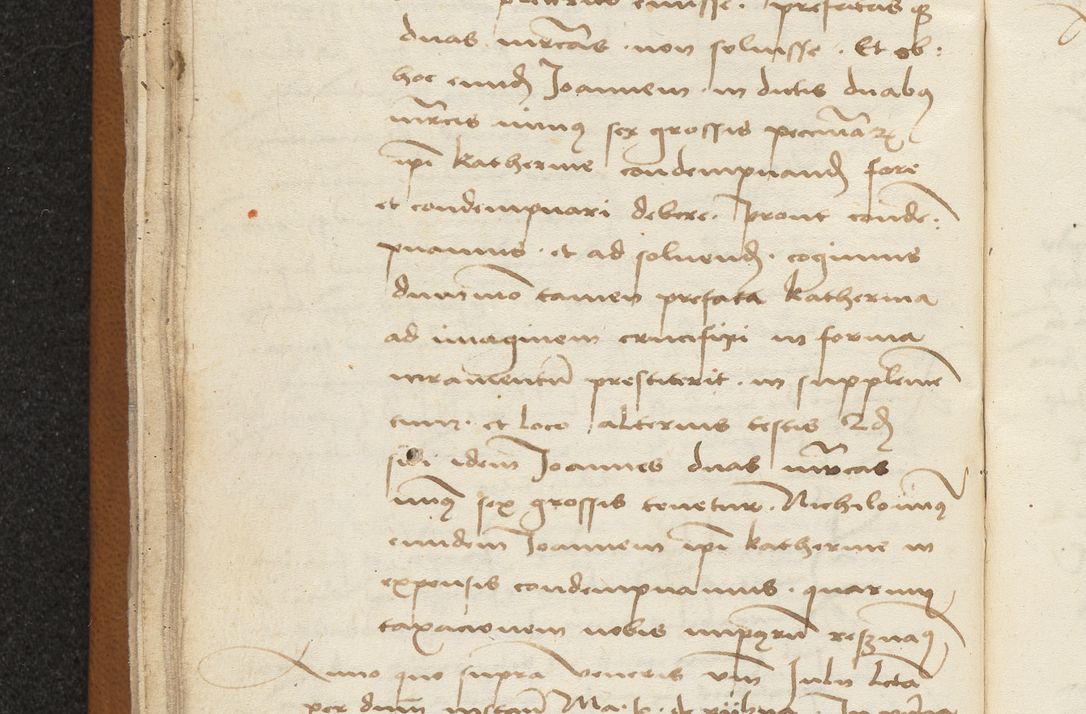 duas marcas non soluisse. Et ob:
hoc eund Joannem in dictis duabus
marcis minus sex grossis pecuniarum
ipi Katherine condempnand fore
et condempnari debere. Prout conde:
pnamus. et ad soluend. cogimus
dummo tamen prefata Katherina
ad imaginem crucifixi in forma
iuramentum prestiterit. in suppleme
tum. et loco alterius testis Qd
sibi idem Joannes duas marcas
minus sex grossis tenetur. Nichilominus
eundem Joannem ipi Katherine in
expensis condempnamus. quarum
taxacionem nobis imposterum reseruamus
Anno quo supra Veneris Julii lecta